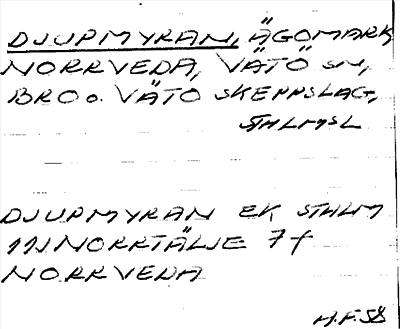 DJUPMYRAN, ÄGOMARK
NORRVEDA, VÄTÖ SN,
BRO o. VÄTÖ SKEPPSLAG,
STHLMSL
DJUPMYRAN EK STHLM
11J NORRTÄLJE 7f
NORRVEDA
H.F.58